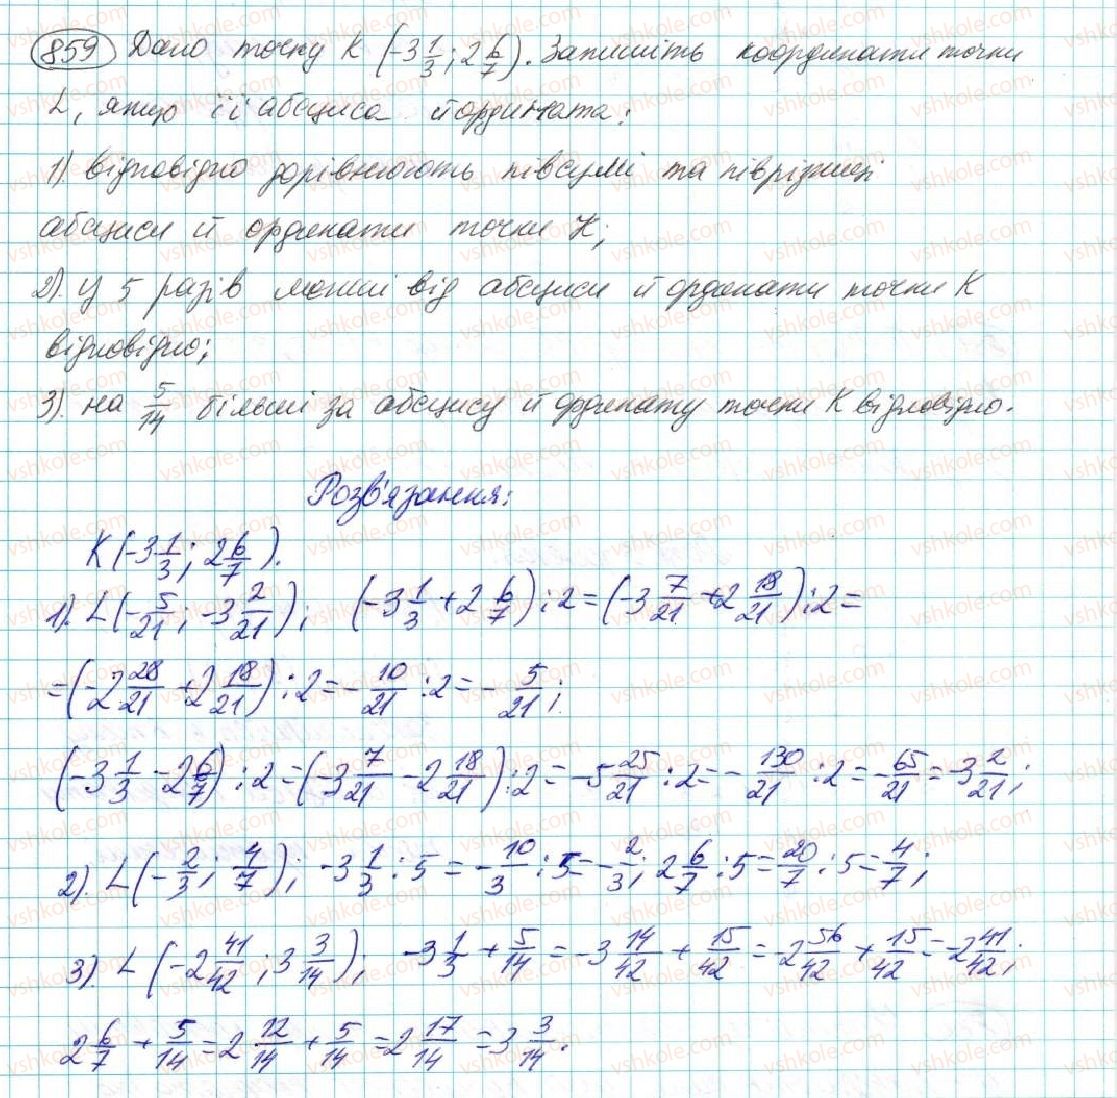 859 Дано точку K (-3 1/3; 2 6/7). Запишіть координати точки
L, якщо її абсциса й ордината:
1) відповідно дорівнюють півсумі та піврізниці
абсциси й ординати точки K;
2) у 5 разів менші від абсциси й ординати точки K
відповідно;
3) на 5/14 більші за абсцису й ординату точки K відповідно.
Розв'язання:
K (-3 1/3; 2 6/7).
1). L (-5/21; -3 2/21); (-3 1/3 + 2 6/7) : 2 = (-3 7/21 + 2 18/21) : 2 =
= (-2 28/21 + 2 18/21) : 2 = -10/21 : 2 = -5/21;
(-3 1/3 - 2 6/7) : 2 = (-3 7/21 - 2 18/21) : 2 = -5 25/21 : 2 = -130/21 : 2 = -65/21 = -3 2/21;
2). L (-2/3; 4/7); -3 1/3 : 5 = -10/3 : 5 = -2/3; 2 6/7 : 5 = 20/7 : 5 = 4/7;
3) L (-2 41/42; 3 3/14); -3 1/3 + 5/14 = -3 14/42 + 15/42 = -2 56/42 + 15/42 = -2 41/42;
2 6/7 + 5/14 = 2 12/14 + 5/14 = 2 17/14 = 3 3/14.
vshkole.com